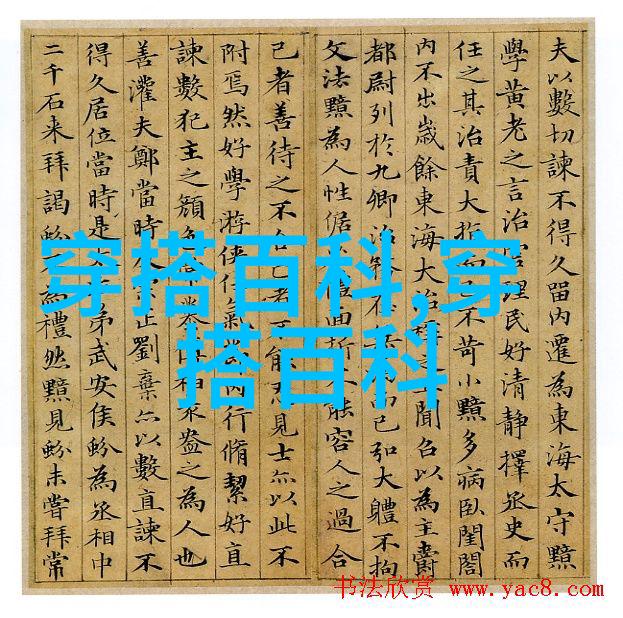 夫以數切諫不得久留內遷為東海太守黯
學黃老之言治官理民好清静擇丞史而
任之其治責大指而不苛小黯多病臥閨閤
內不出歲餘東海大治稱之聞召以為主爵
都尉列於九卿治務不已弘大體不拘
文法黯為人性倨禮面折不能容人之過合
己者善待之不合己者不能忍見士亦以此不
附焉然好學游俠任氣節內行脩絜好直
諫數犯主之顏色常慕傅柏袁盎之為人也
善灌夫鄭當時正劉棄亦以數直諫不
得久居位當時是太弟武安侯蚡為丞相中
二千石来拜謁蚡不為禮然黯見蚡未嘗拜常
穿搭百科,穿
搭百科
书法欣赏 www.yac8.com